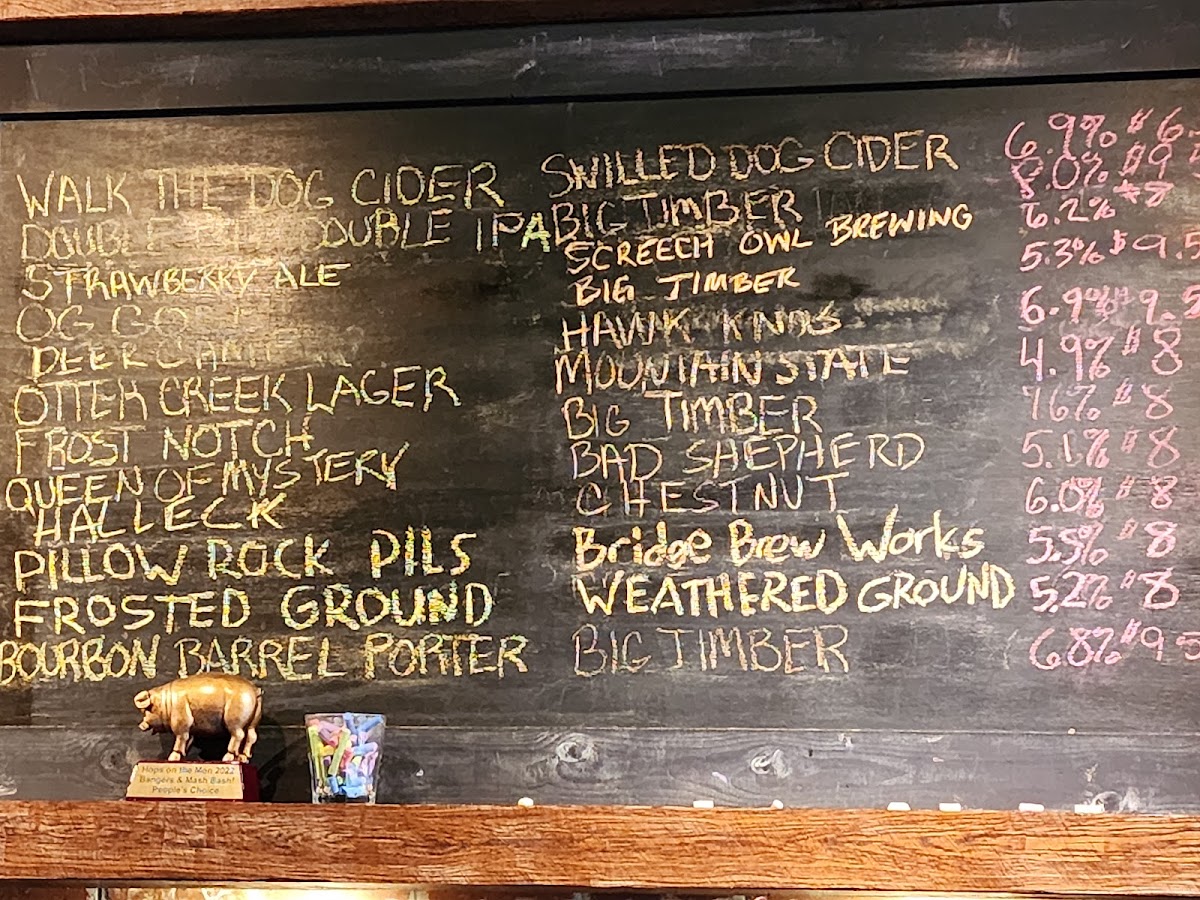 WALK THE DOG CIDER SWILLED DOG CIDER 6.9% $6.
DOUBLE DOUBLE IPA BIG TIMBER 8.0% $9
STRAWBERRY ALE SCREECH OWL BREWING 6.2% $8
OG BIG TIMBER 5.3% $9.5
DEER HAWK KNOB 6.9% 9.5
OTTER CREEK LAGER MOUNTAIN STATE 4.9% $8
FROST NOTCH BIG TIMBER 7.6% $8
QUEEN OF MYSTERY BAD SHEPHERD 5.1% $8
HALLECK CHESTNUT 6.0% $8
PILLOW ROCK PILS Bridge Brew Works 5.5% $8
FROSTED GROUND WEATHERED GROUND 5.2% $8
BOURBON BARREL PORTER BIG TIMBER 6.8% $9.5
Hops on the Mon 2022
Bangers & Mash Bash!
People's Choice